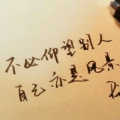 不必仰望别人
自己亦是风景